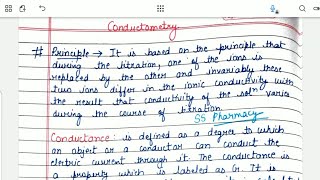 Conductometry
# Principle → It is based on the principle that
during the titration, one of the ions is
replaced by the other and invariably these
two ions differ in the ionic conductivity with
the result that conductivity of the soln varies
during the course of titration.
SS Pharmacy
Conductance : is defined as a degree to which
an object or a conductor can conduct the
electric current through it. The conductance is
a property which is labeled as G. It is